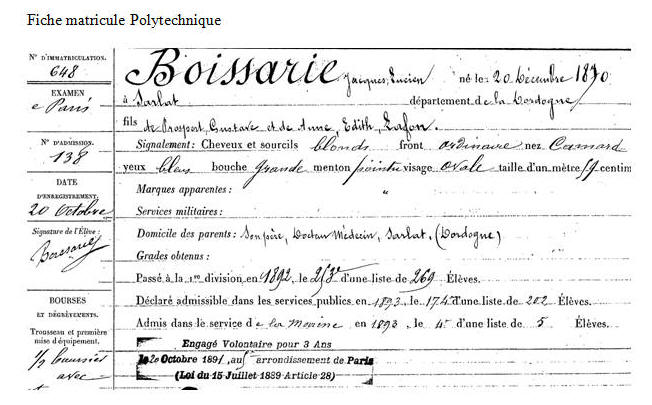 Fiche matricule Polytechnique
N° D'IMMATRICULATION.
648
EXAMEN
e Paris
N° D'ADMISSION.
138
DATE
D'ENREGISTREMENT.
20 Octobre
Signature de l'Élève :
Boissarie
BOURSES
ET DÉGRÈVEMENTS.
Trousseau et première
mise d'équipement.
1/2 boursier
avec
Boissarie Jacques, Lucien né le 20 Décembre 1870
à Sarlat département de la Dordogne
fils
de Prospert, Gustave et de Anne, Edith, Lafon.
Signalement : Cheveux et sourcils blonds front ordinaire nez Camard
yeux bleus bouche grande menton pointu visage ovale taille d'un mètre centim
Marques apparentes : "
Services militaires :
Domicile des parents : Son père, Docteur Médecin, Sarlat. (Dordogne)
Grades obtenus :
Passé à la 1re division en 1892, le 253e d'une liste de 269 Élèves.
Déclaré admissible dans les services publics en 1893, le 174e d'une liste de 202 Élèves.
Admis dans le service de la Marine en 1893, le 4e d'une liste de 5 Élèves.
Engagé Volontaire pour 3 Ans
le 20 Octobre 1891, au 5e arrondissement de Paris
(Loi du 15 Juillet 1889 Article 28)